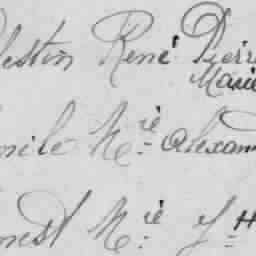 lestin René Pierre
Marie
mile M.ie alexan
nest M.ie J.H